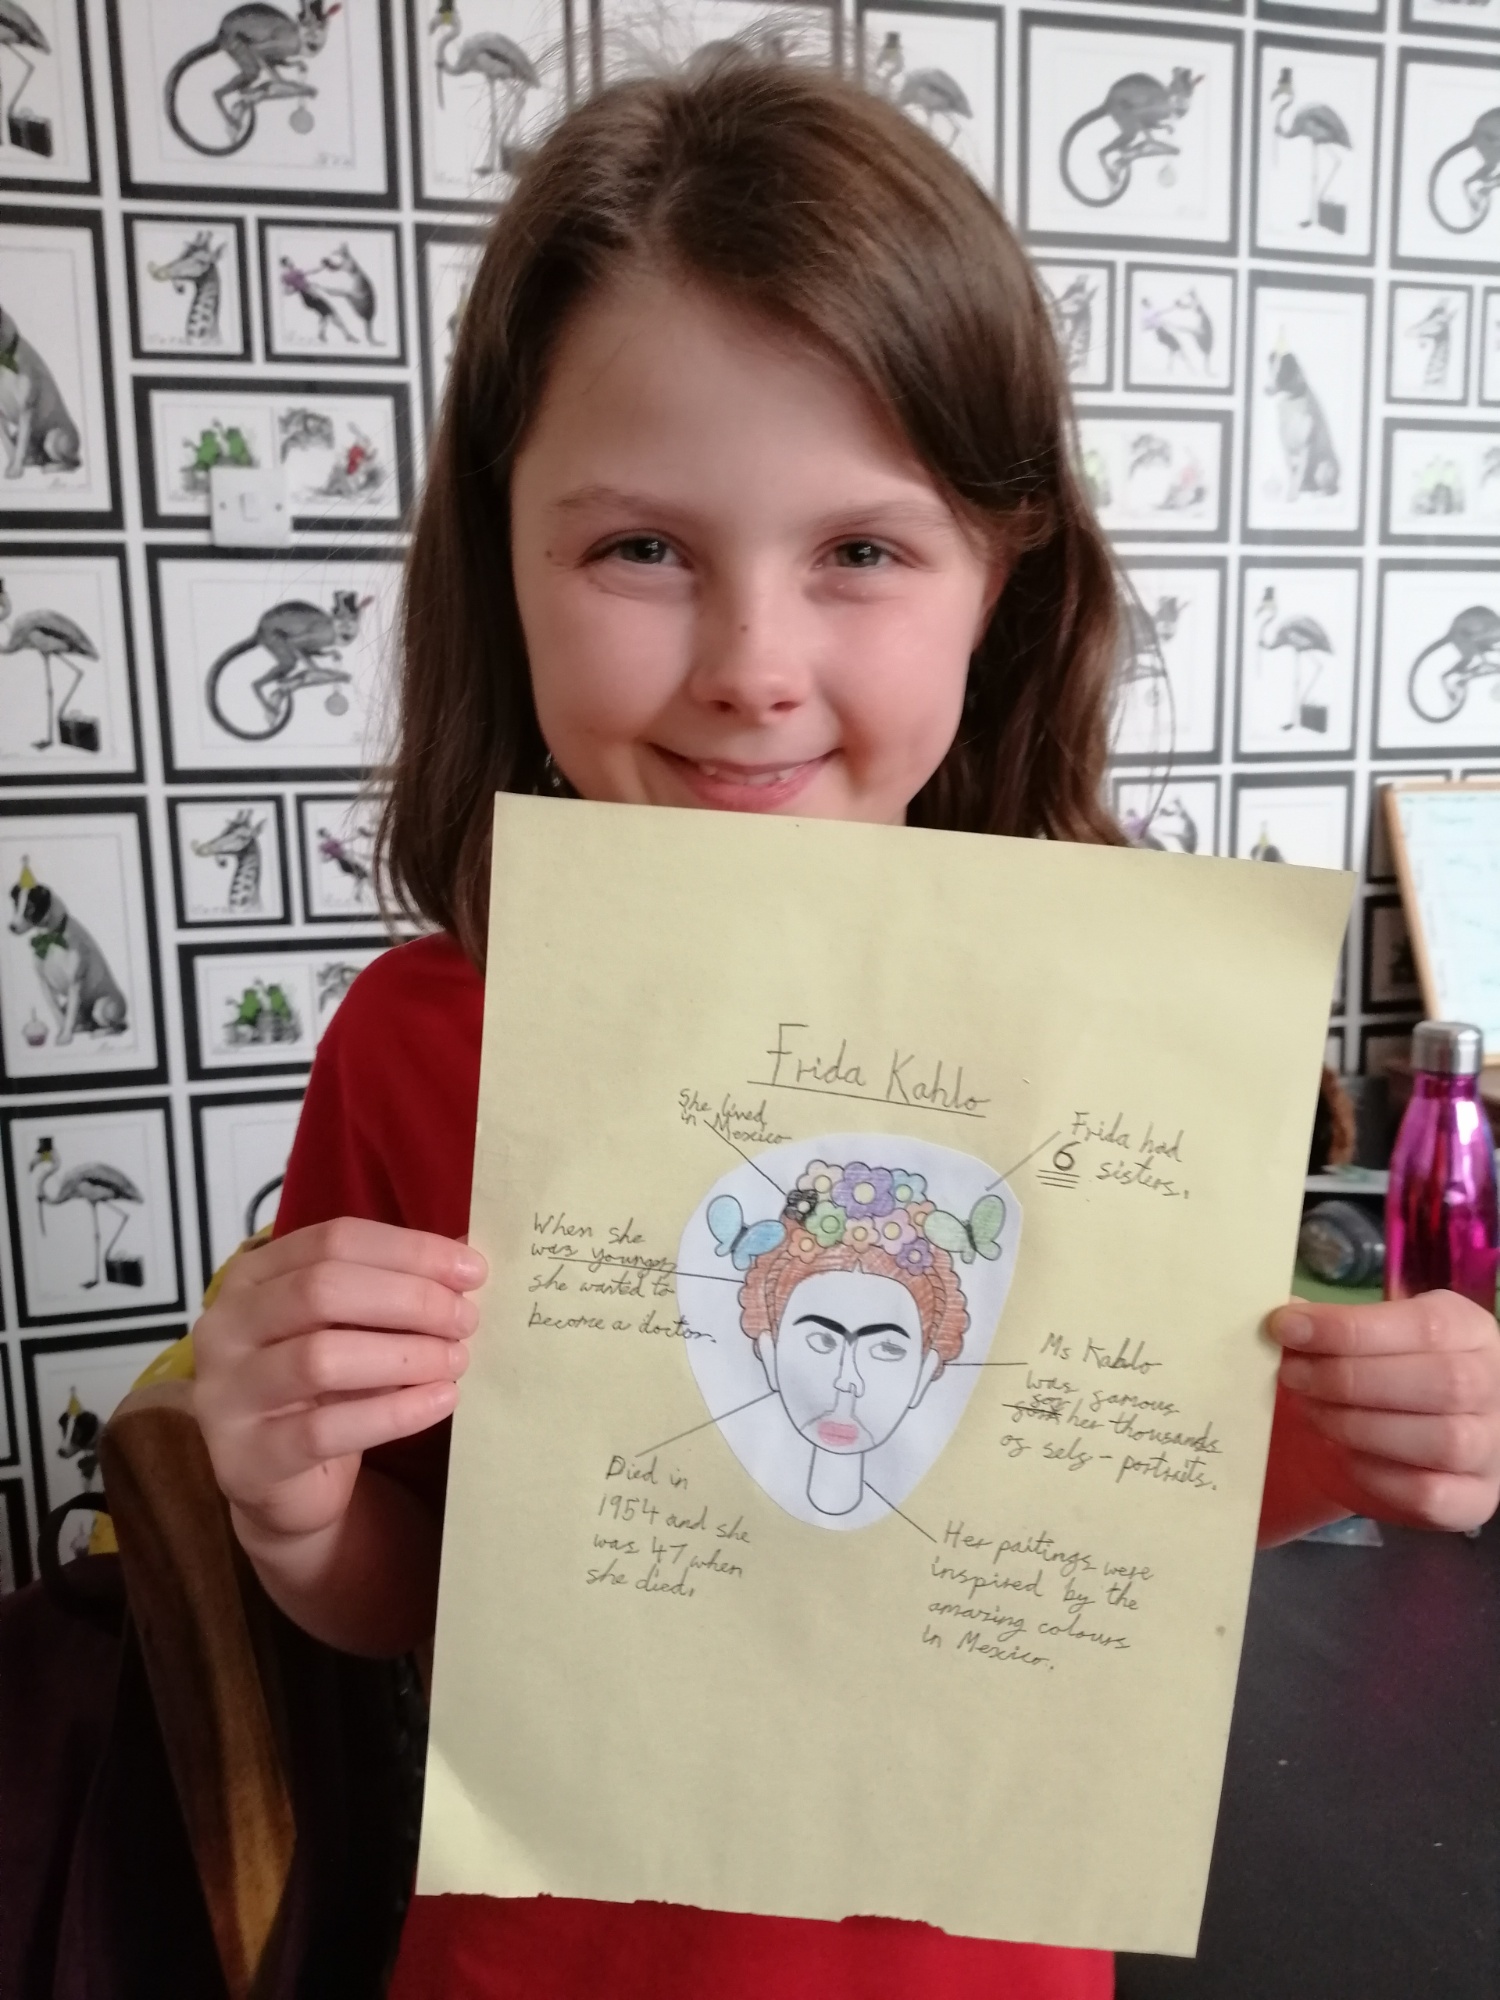 Frida Kahlo
She lived
in Mexico
Frida had
6 sisters.
When she
was younger
she wanted to
become a doctor.
Ms Kahlo
was famous
for her thousands
of self-portraits.
Died in
1954 and she
was 47 when
she died.
Her paitings were
inspired by the
amazing colours
in Mexico.